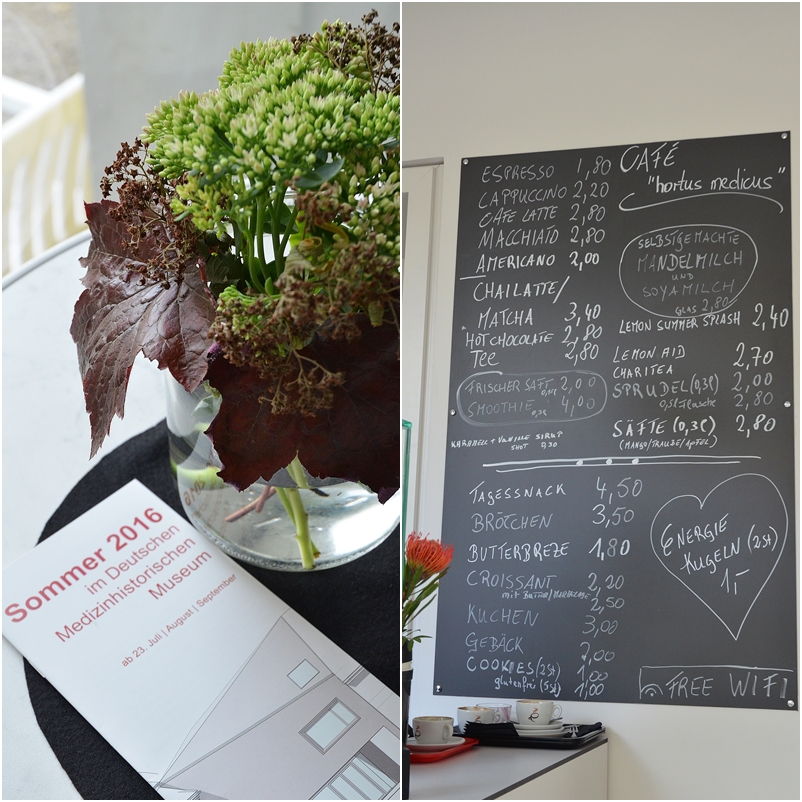 Sommer 2016
im Deutschen
Medizinhistorischen
Museum
ab 23. Juli | August | September
ESPRESSO 1,80
CAPPUCCINO 2,20
CAFE LATTE 2,80
MACCHIATO 2,80
AMERICANO 2,00
CHAILATTE/
MATCHA 3,40
HOT CHOCOLATE 2,80
TEE 2,80
FRISCHER SAFT 2,00
SMOOTHIE 4,00
KARAMELL + VANILLE SIRUP
SHOT 0,30
CAFÉ
"hortus medicus"
SELBSTGEMACHTE
MANDELMILCH
UND
SOYAMILCH
GLAS 2,80
LEMON SUMMER SPLASH 2,40
LEMON AID 2,70
CHARITEA
SPRUDEL (0,3l) 2,00
0,5l-Flasche 2,80
SÄFTE (0,3l) 2,80
(MANGO/TRAUBE/APFEL)
TAGESSNACK 4,50
BRÖTCHEN 3,50
BUTTERBREZE 1,80
CROISSANT 2,20
mit BUTTER/MARMELADE 2,50
KUCHEN 3,00
GEBÄCK 2,00
COOKIES (2St) 1,00
glutenfrei (5St) 1,00
ENERGIE
KUGELN (2St)
1,-
FREE WIFI